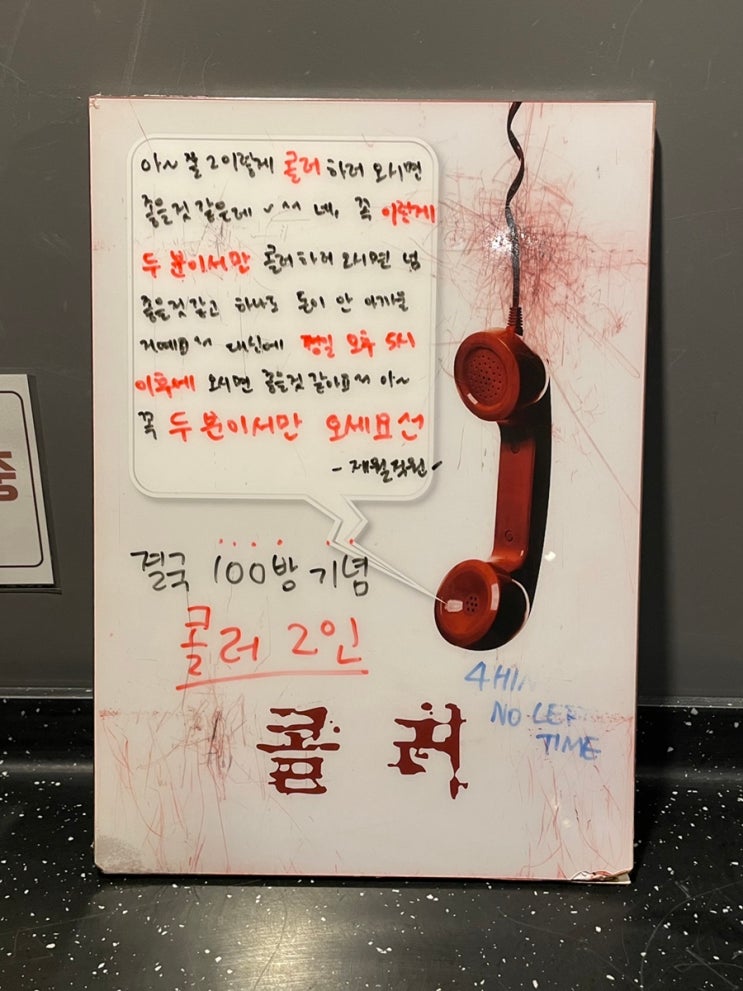 아~ 잘 2이렇게 콜러 하러 오시면
좋을것 같은데 ^^ 네, 꼭 이렇게
두 분이서만 콜러하러 오시면 넘
좋을것 같고 하나도 돈이 안 아까울
거예요^^ 대신에 평일 오후 5시
이후에 오시면 좋을것 같아요^^ 아~
꼭 두 분이서만 오세요
- 재원직원 -
결국 100방 기념
콜러 2인
콜러
4 HIN
NO LEF
TIME